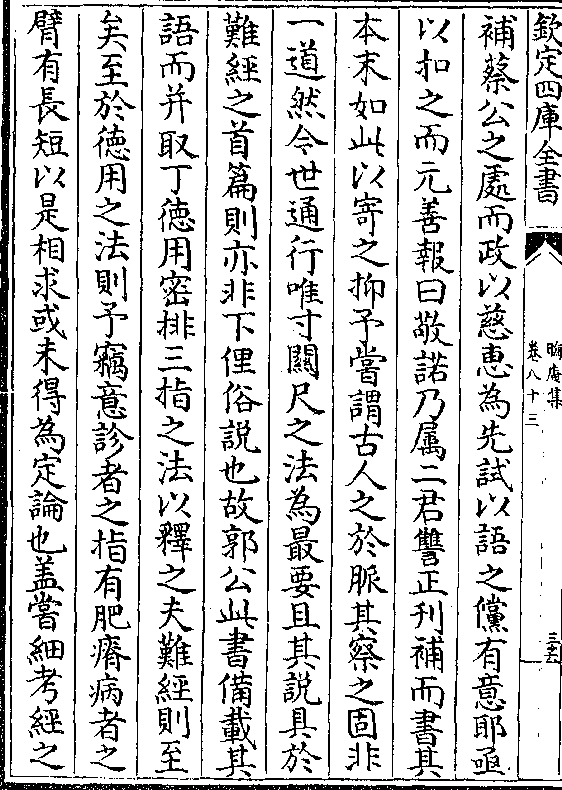 欽定四庫全書
晦庵集
卷八十三
補蔡公之處而政以慈恵為先試以語之儻有意耶亟
以扣之而元善報曰敬諾乃属二君讐正刊補而書其
本末如此以寄之抑予嘗謂古人之於脈其察之固非
一道然今世通行唯寸關尺之法為最要且其説具於
難經之首篇則亦非下俚俗説也故郭公此書備載其
語而并取丁徳用密排三指之法以釋之夫難經則至
矣至於徳用之法則予竊意診者之指有肥瘠病者之
臂有長短以是相求或未得為定論也盖嘗細考經之